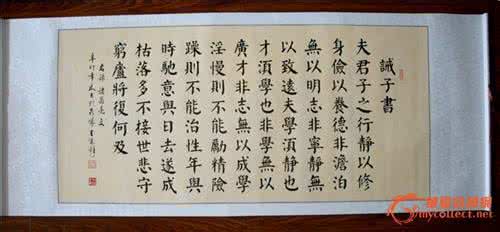 誡子書
夫君子之行靜以修
身儉以養德非澹泊
無以明志非寧靜無
以致遠夫學湏靜也
才湏學也非學無以
廣才非志無以成學
淫慢則不能勵精險
躁則不能治性年與
時馳意與日去遂成
枯落多不接世悲守
窮廬將復何及
右錄諸葛亮文
辛卯年
mycollect.net